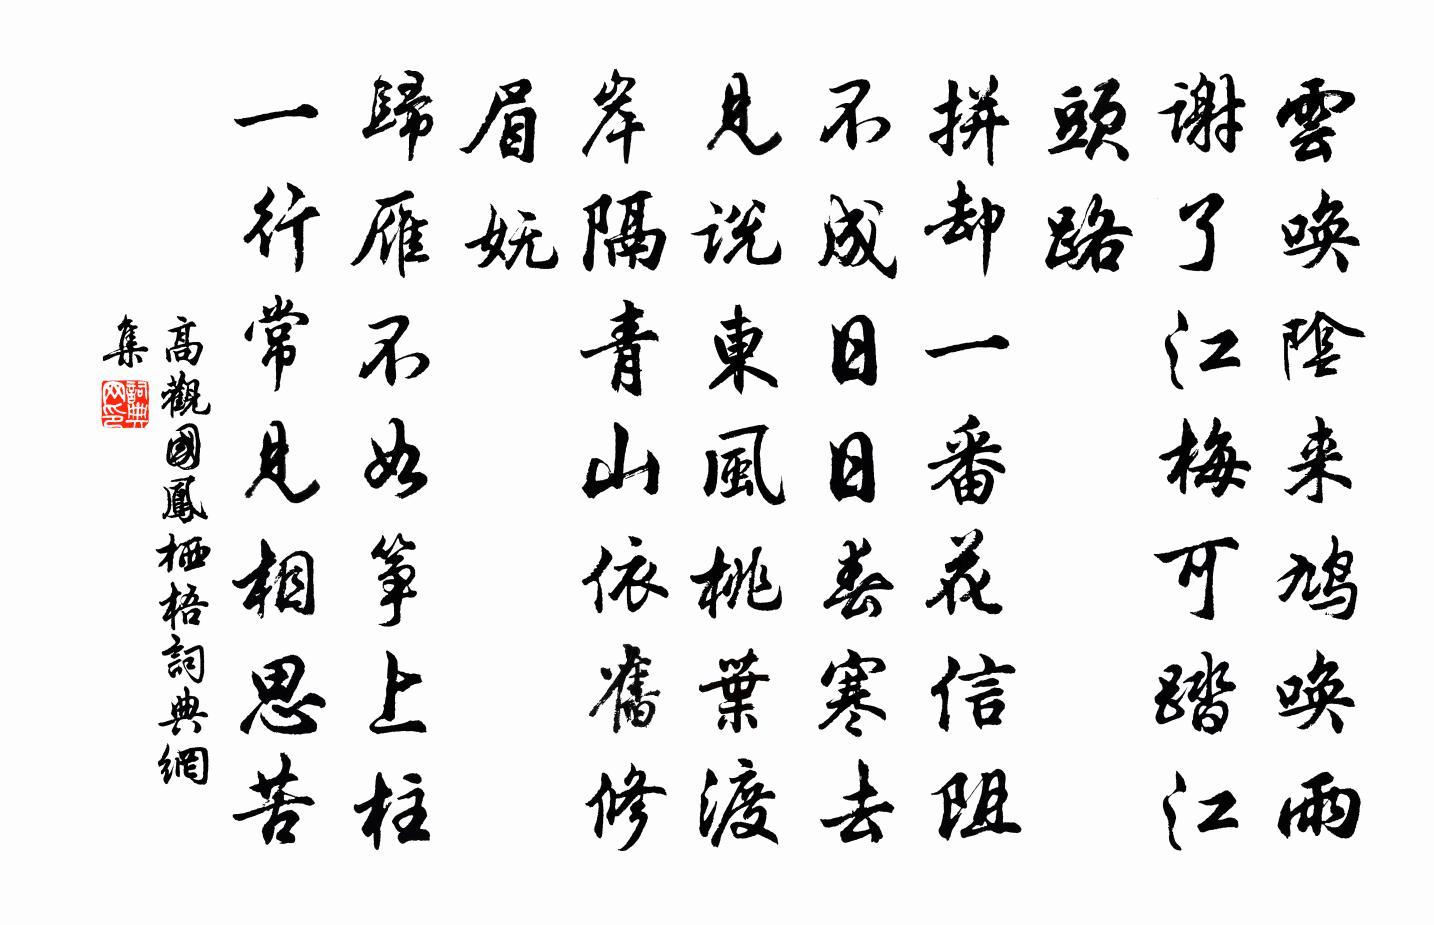 雲唤陰来鸠唤雨
謝了江梅可踏江
頭路
拼却一番花信阻
不成日日春寒去
見说東風桃葉渡
岸隔青山依舊修
眉妩
歸雁不如筝上柱
一行常見相思苦
高觀國鳳栖梧詞典網
集
詞典
网印